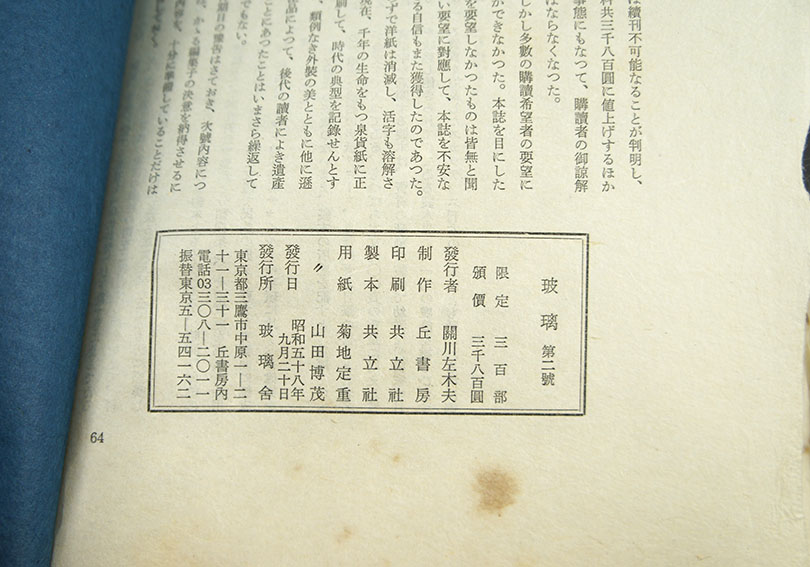 は續刊不可能なることが判明し、
料共三千八百圓に値上げするほか
事態にもなつて、購讀者の御諒解
はならなくなつた。
しかし多數の購讀希望者の要望に
ができなかつた。本誌を目にした
を要望しなかつたものは皆無と聞
い要望に對應して、本誌を不安な
る自信もまた獲得したのであつた。
ずで洋紙は消滅し、活字も溶解さ
現在、千年の生命をもつ泉貨紙に正
刷して、時代の典型を記錄せんとす
、類例なき外裝の美とともに他に遜
品によつて、後代の讀者によき遺產
ことにあつたことはいまさら繰返して
でもない。
期目の豫告はさておき、次號內容につ
は、かゝる編集子の決意を納得させるに
內容を、十分に準備していることだけは
玻璃 第二號
限定 三百部
頒價 三千八百圓
發行者 關川左木夫
制作 丘書房
印刷 共立社
製本 共立社
用紙 菊地定重
〃 山田博茂
發行日 昭和五十八年
九月二十日
發行所 玻璃舍
東京都三鷹市中原一—二
十一—三十一 丘書房內
電話03三〇八—二〇一一
振替東京五—五四一六二
64